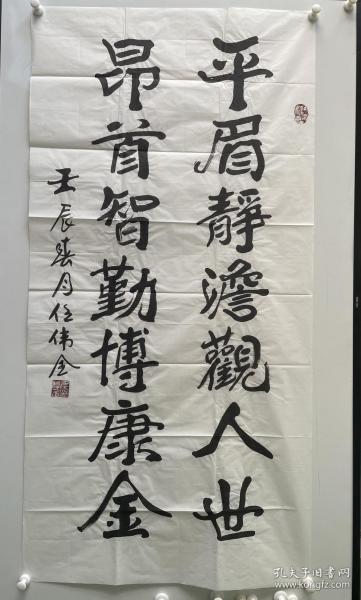 平眉靜澹觀人世
昂首智勤博康金
壬辰春月任伟全
孔夫子旧书网
www.kongfz.com